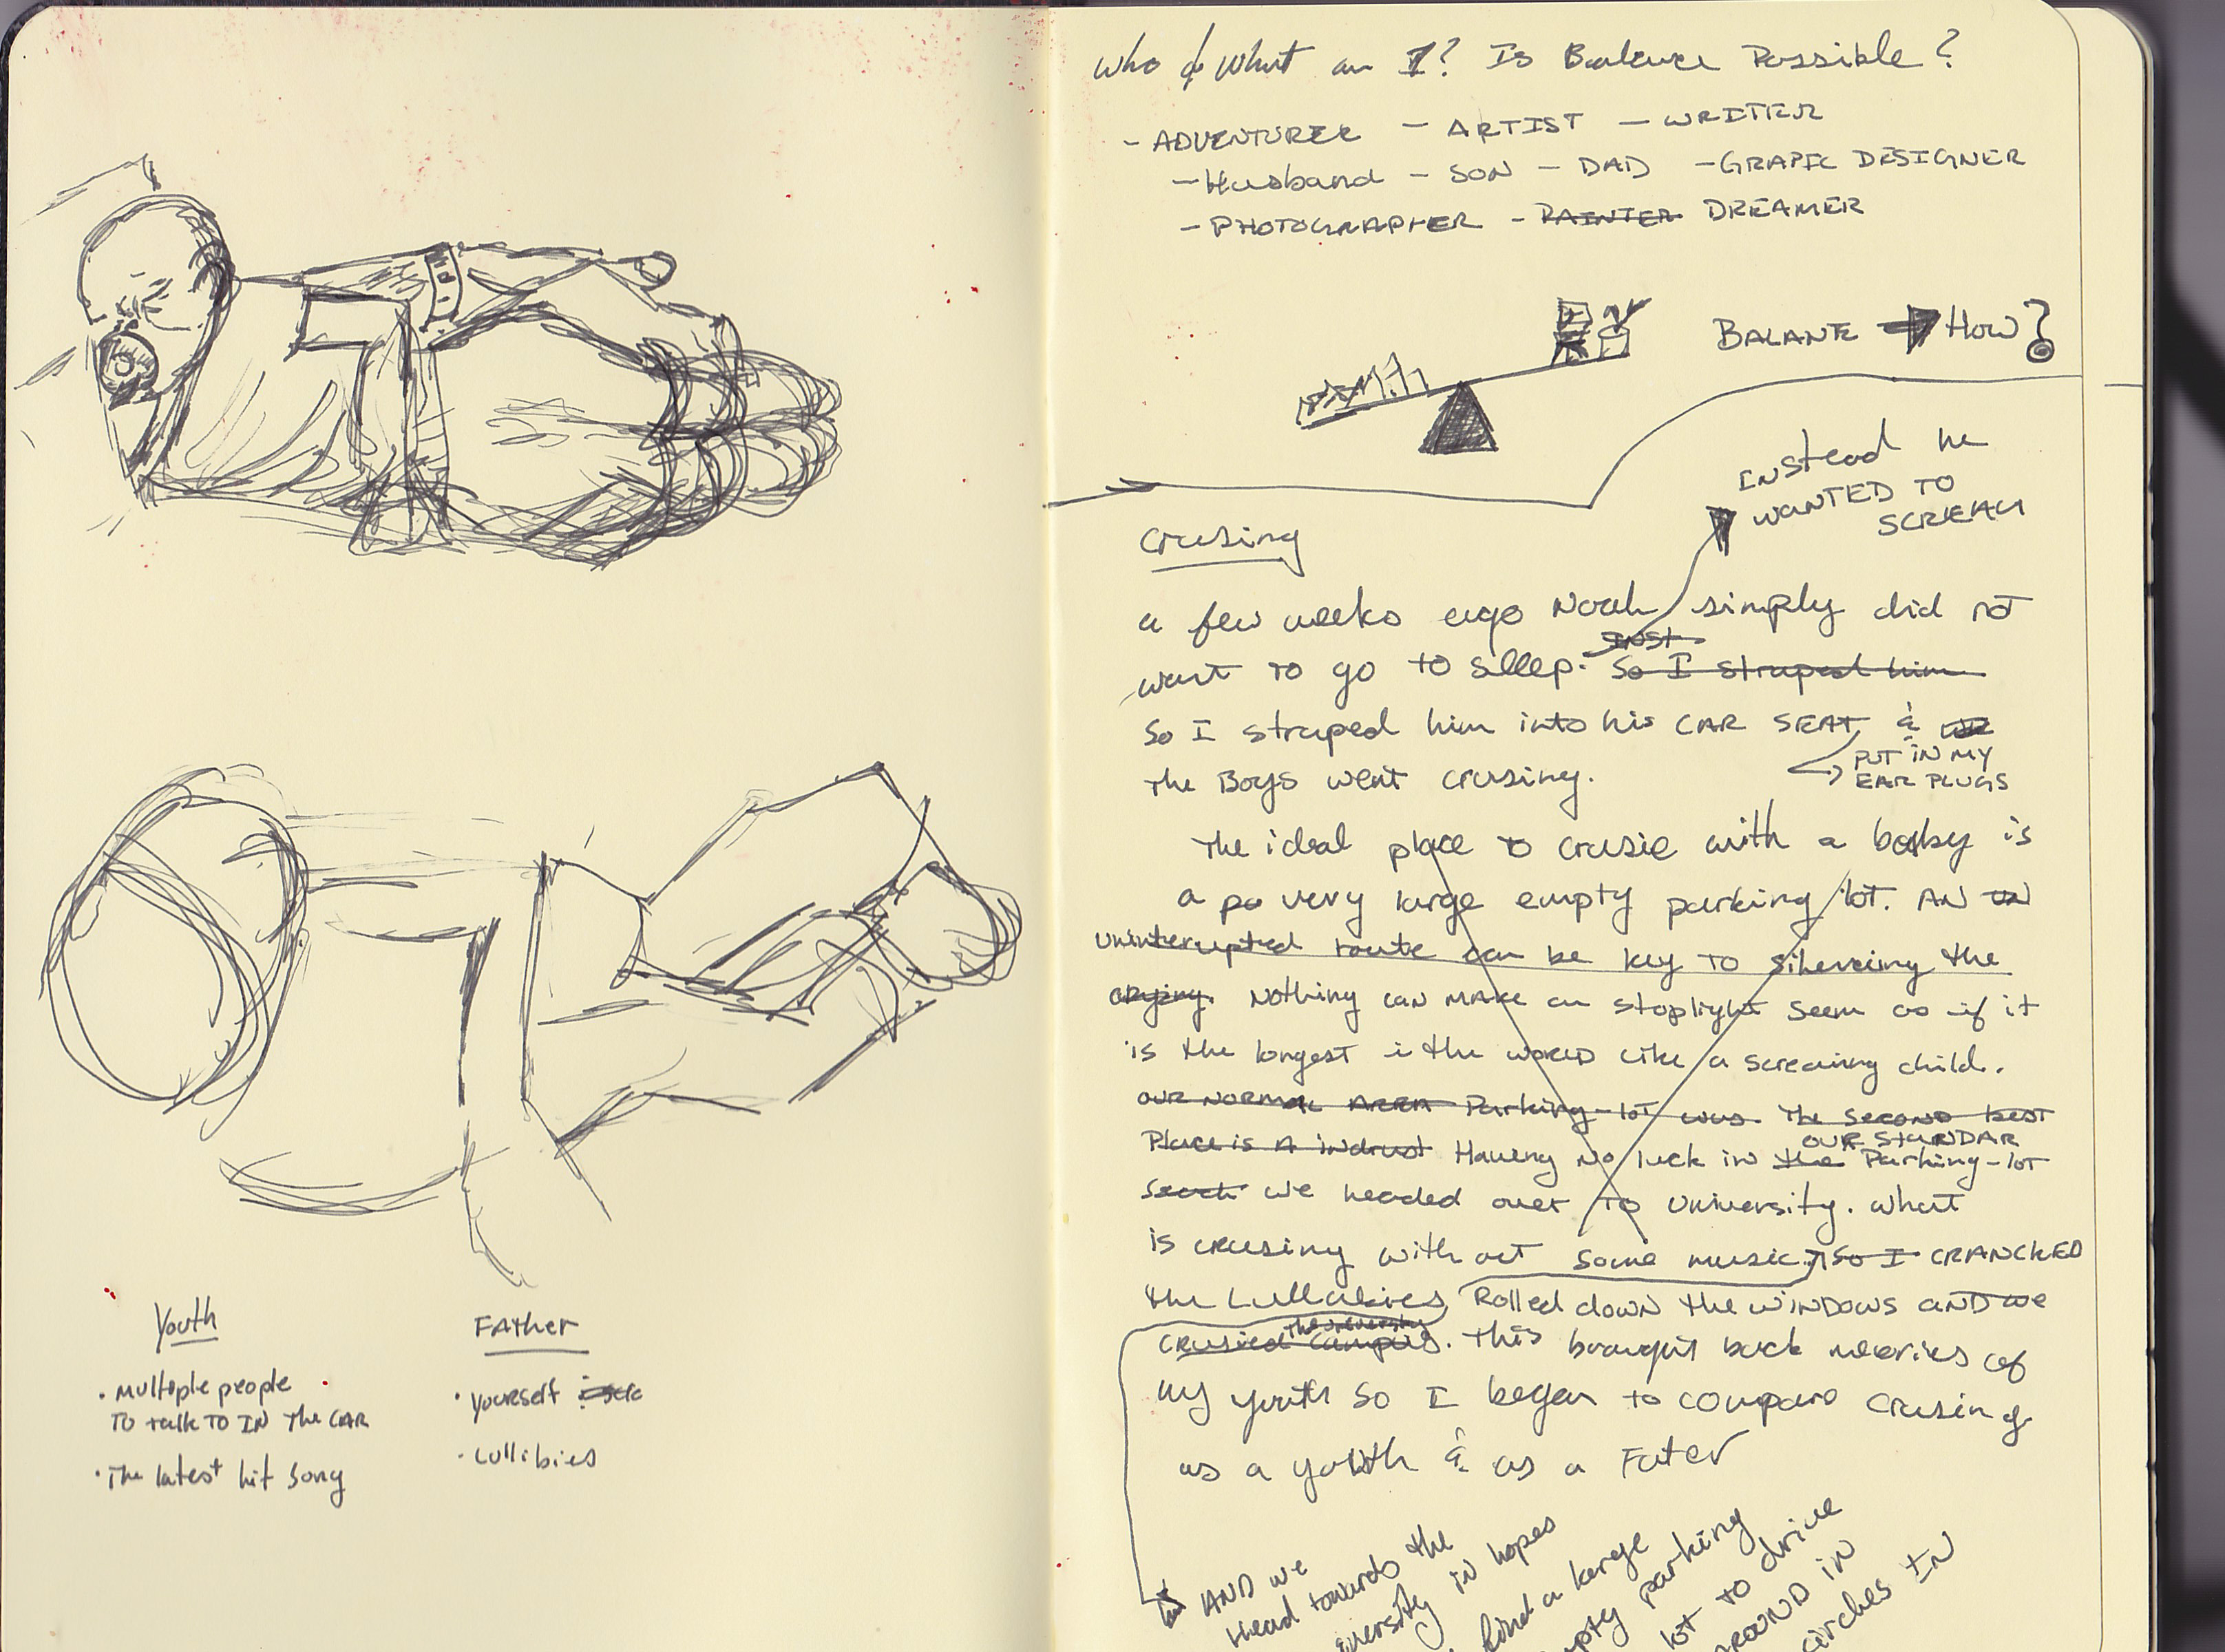 Youth
• Multiple people
To talk TO IN The CAR
• The latest hit song
FATher
• yourself
• Lullibies
Who & What am I? Is Balance Possible?
- ADVENTURER - ARTIST - WRITER
- Husband - SON - DAD - GRAPIC DESIGNER
- PHOTOGRAPHER - PAINTER DREAMER
BALANTE → HOW?
INstead he
WANTED TO
SCREAM
Crusing
a few weeks ago Noah simply did not
want to go to sleep. So I straped him
So I straped him into his CAR SEAT &
PUT IN MY
EAR PLUGS
the Boys went crusing.
The ideal place to crusie with a baby is
a po very large empty parking lot. AN UN
uninterupted route can be key TO silenceing the
crying. Nothing can make an stoplight seem as if it
is the longest i the world like a screaming child.
OUR NORMAL AREA Parking-lot was The SECOND best
Place is A indrust Haveing NO luck in the Parking-lot
OUR STANDAR
we headed over TO University. What
is crusing without some music, So I CRANCKED
the Lullabies, Rolled down the windows AND we
crusied campus. This brought back meories of
the University
my youth so I began to compare crusing
as a youth & as a Fater
AND we
Head towards the
iversity in hopes
find a large
mpty parking
lot to drive
AROUND in
circles IN